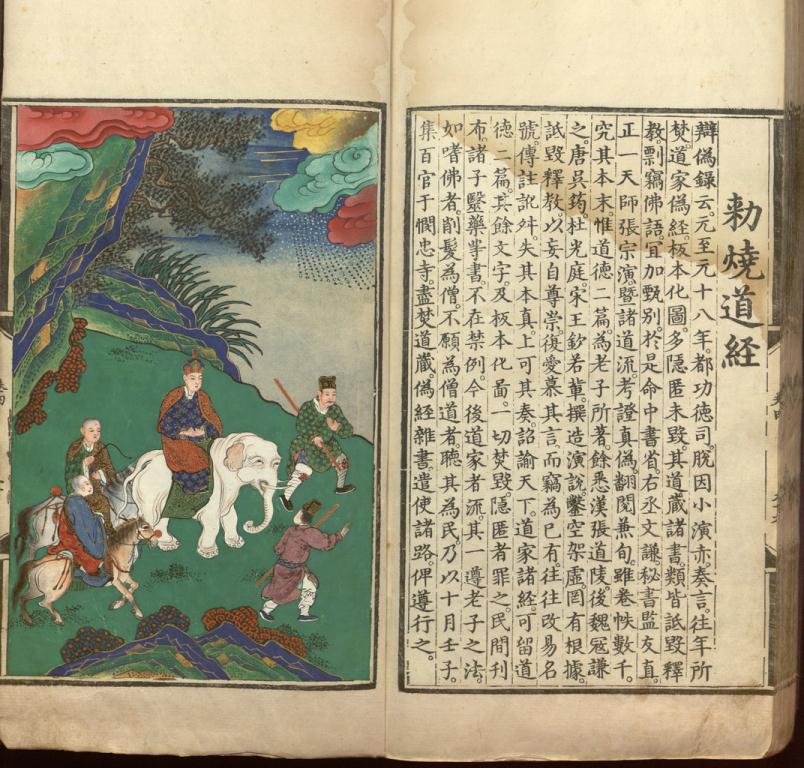 勅燒道經
辯偽錄云。元至元十八年。都功德司脫因小演赤奏言。往年所
焚道家偽經。板本化圖。多隱匿未毀。其道藏諸書。類皆詆毀釋
教。剽竊佛語。宜加甄別。於是命中書省右丞文謙。秘書監友直。
正一天師張宗演。暨諸道流。考證真偽。翻閱兼旬。雖卷帙數千。
究其本末。惟道德二篇。為老子所著。餘悉漢張道陵。後魏寇謙
之。唐吳筠。杜光庭。宋王欽若輩。撰造演說。鑿空架虛。罔有根據。
詆毀釋教。以妄自尊崇。復愛慕其言。而竊為己有。往往改易名
號。傳註訛舛。失其本真。上可其奏。詔諭天下。道家諸經。可留道
德二篇。其餘文字。及板本化啚。一切焚毀。隱匿者罪之。民間刊
布。諸子醫藥等書。不在禁例。今後道家者流。其一遵老子之法。
如嗜佛者。削髮為僧。不願為僧道者。聽其為民。乃以十月壬子。
集百官于憫忠寺。盡焚道藏。偽經雜書。遣使諸路。俾遵行之。